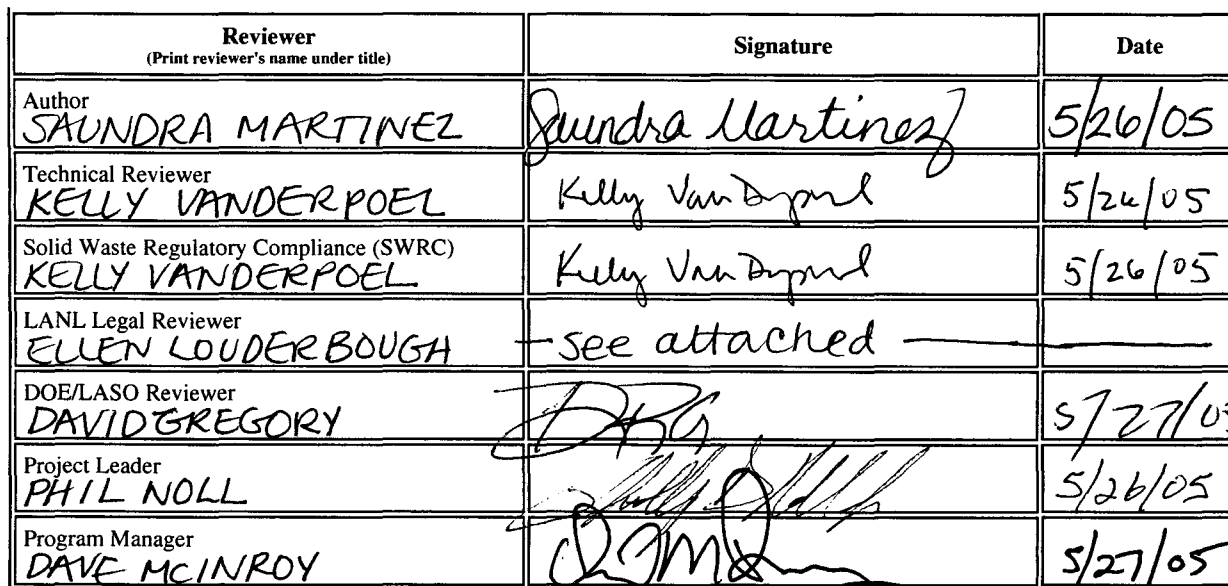 Reviewer Signature Date
(Print reviewer's name under title)
Author
SAUNDRA MARTINEZ Saundra Martinez 5/26/05
Technical Reviewer
KELLY VANDERPOEL Kelly 5/26/05
Solid Waste Regulatory Compliance (SWRC)
KELLY VANDERPOEL Kelly 5/26/05
LANL Legal Reviewer
ELLEN LOUDERBOUGH - see attached
DOE/LASO Reviewer
DAVID GREGORY 5/27/05
Project Leader
PHIL NOLL 5/26/05
Program Manager
DAVE MCINROY 5/27/05